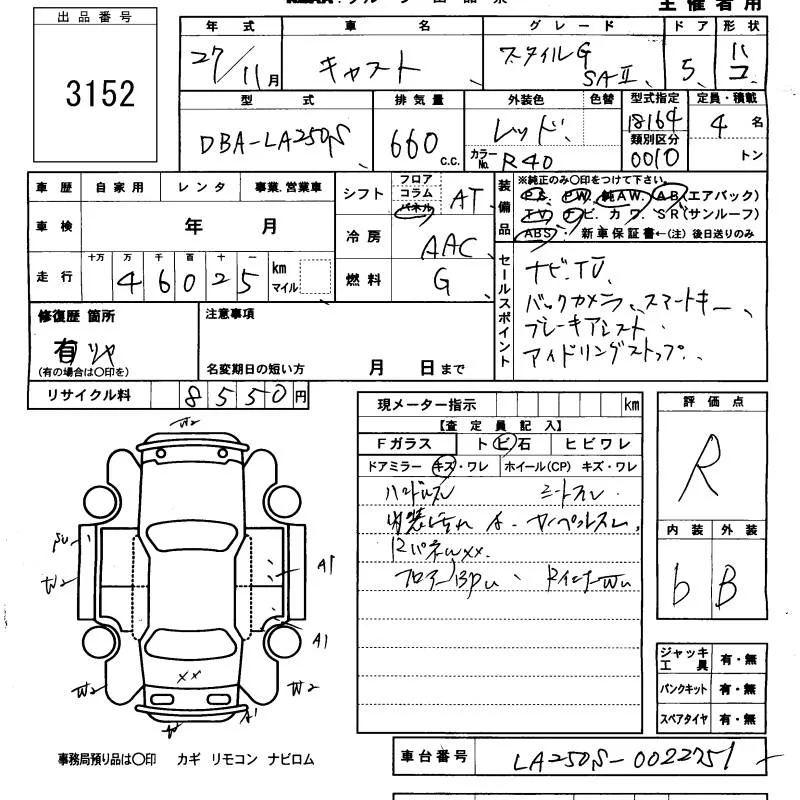 主催者用
出品番号
3152
年式 車名 グレード ドア 形状
27/11月 キャスト スタイルG SAⅡ 5 ハコ
型式 排気量 外装色 色替 型式指定 定員・積載
DBA-LA250S 660 c.c. レッド 18164 4名
カラーNo. R40 類別区分 0010 トン
車歴 自家用 レンタ 事業.営業車
シフト フロア コラム パネル AT
車検 年 月
冷房 AAC
走行 十万 万 千 百 十 一
46025 km マイル
燃料 G
装備品 ※純正のみ〇印をつけて下さい。
P.S. P.W. 純AW. A.B(エアバック)
T.V. ナビ. カワ. SR(サンルーフ)
ABS. 新車保証書←(注)後日送りのみ
セールスポイント
ナビ.TV
バックカメラ、スマートキー、
ブレーキアシスト
アイドリングストップ
修復歴 箇所
有 リヤ
(有の場合は〇印を)
注意事項
名変期日の短い方 月 日まで
リサイクル料 8550円
現メーター指示 km
【査定員記入】
Fガラス トビ石 ヒビワレ
ドアミラー キズ・ワレ ホイール(CP) キズ・ワレ
ハンドルスレ シートスレ
内装汚れ
Rパネルxx.
評価点
R
内装 外装
b B
W2
W2
A1
A1
W2
xx
W2
W2
A1
ジャッキ 工具 有・無
パンクキット 有・無
スペアタイヤ 有・無
事務局預り品は〇印 カギ リモコン ナビロム
車台番号 LA250S-0022751